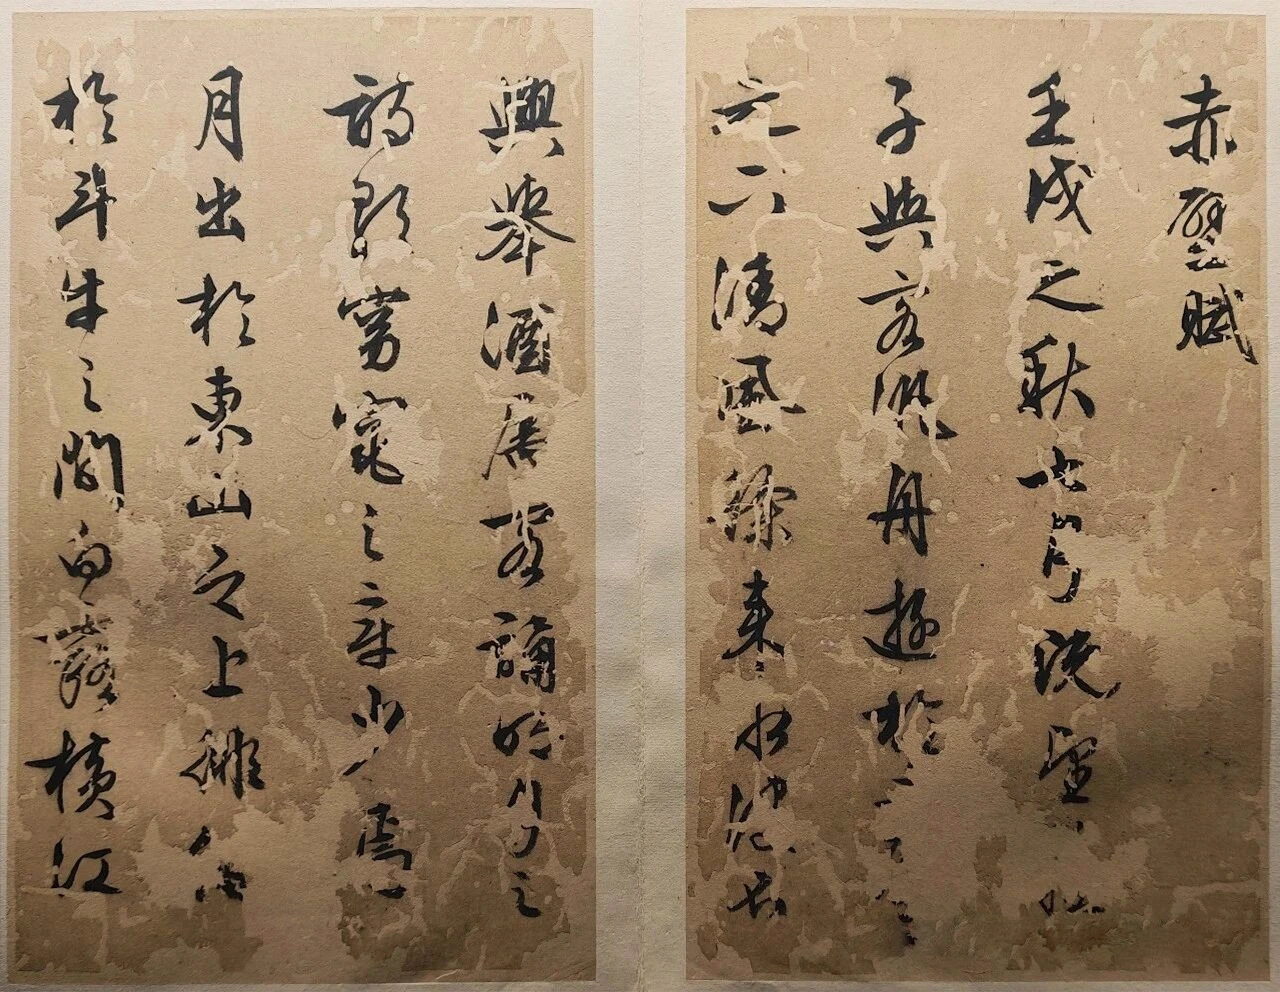 赤壁賦
壬戌之秋七月既望
子與客汎舟遊於
之下清風徐來水波不
興舉酒屬客誦明月之
詩歌窈窕之章少焉
月出於東山之上徘徊
於斗牛之間白露橫江